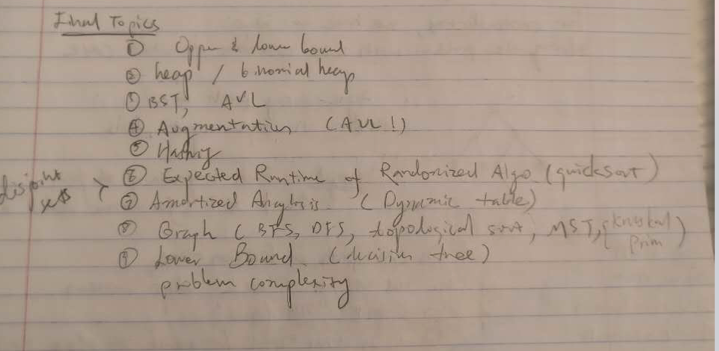 Final Topics
① Upper & lower bound
② heap / binomial heap
③ BST, AVL
④ Augmentation (AVL!)
⑤ Hashing
⑥ Expected Runtime of Randomized Algo (quicksort)
disjoint sets >
⑦ Amortized Analysis (Dynamic table)
⑧ Graph (BFS, DFS, topological sort, MST, (Kruskal Prim)
⑨ Lower Bound (decision tree)
problem complexity